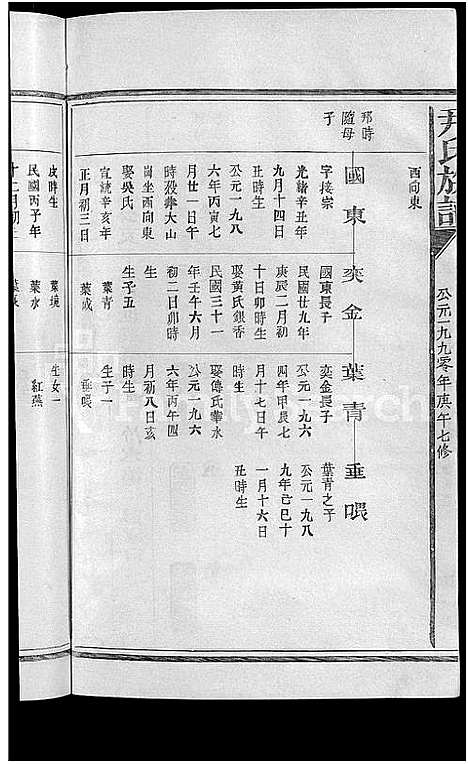 尹氏族譜
公元一九九零年庚午七修
西向東
邦時
隨母
子
國東
奕金
葉青
垂喂
字接宗
光緒辛丑年
九月十四日
丑時生
公元一九八
六年丙寅七
月廿一日午
時殁葬大山
崗坐西向東
娶吳氏
宣統辛亥年
正月初三日
國東長子
民國廿九年
庚辰二月初
十日卯時生
娶黃氏銀香
民國三十一
年壬午六月
初二日卯時
生
生子五
葉青
葉成
奕金長子
公元一九六
四年甲辰七
月十七日午
時生
娶傅氏華水
公元一九六
六年丙午四
月初八日亥
時生
生子一
垂喂
葉青之子
公元一九八
九年己巳十
一月十六日
丑時生
皮時生
民國丙子年
十二月初
葉境
葉水
生女一
紅燕